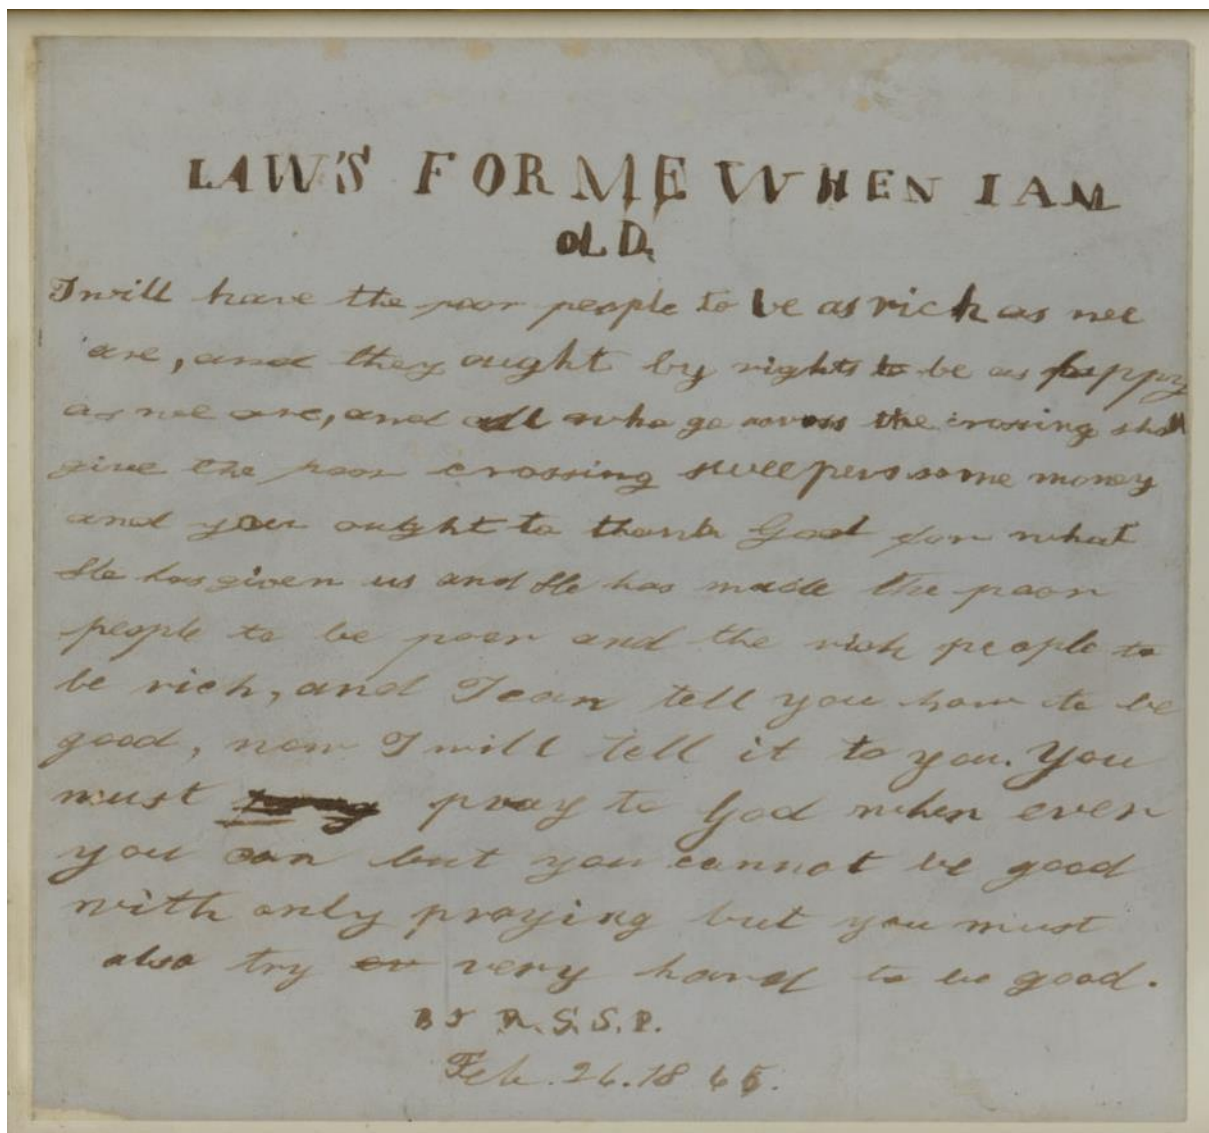 LAW'S FOR ME WHEN I AM
OLD.
I will have the poor people to be as rich as we
are, and they ought by rights to be as happy
as we are, and all who go across the crossing shall
give the poor crossing sweepers some money
and you ought to thank God for what
He has given us and He has made the poor
people to be poor and the rich people to
be rich, and I can tell you how to be
good, now I will tell it to you. You
must pray to God when ever
you can but you cannot be good
with only praying but you must
also try very hard to be good.
BY R.S.S.P.
Feb. 26. 1865.